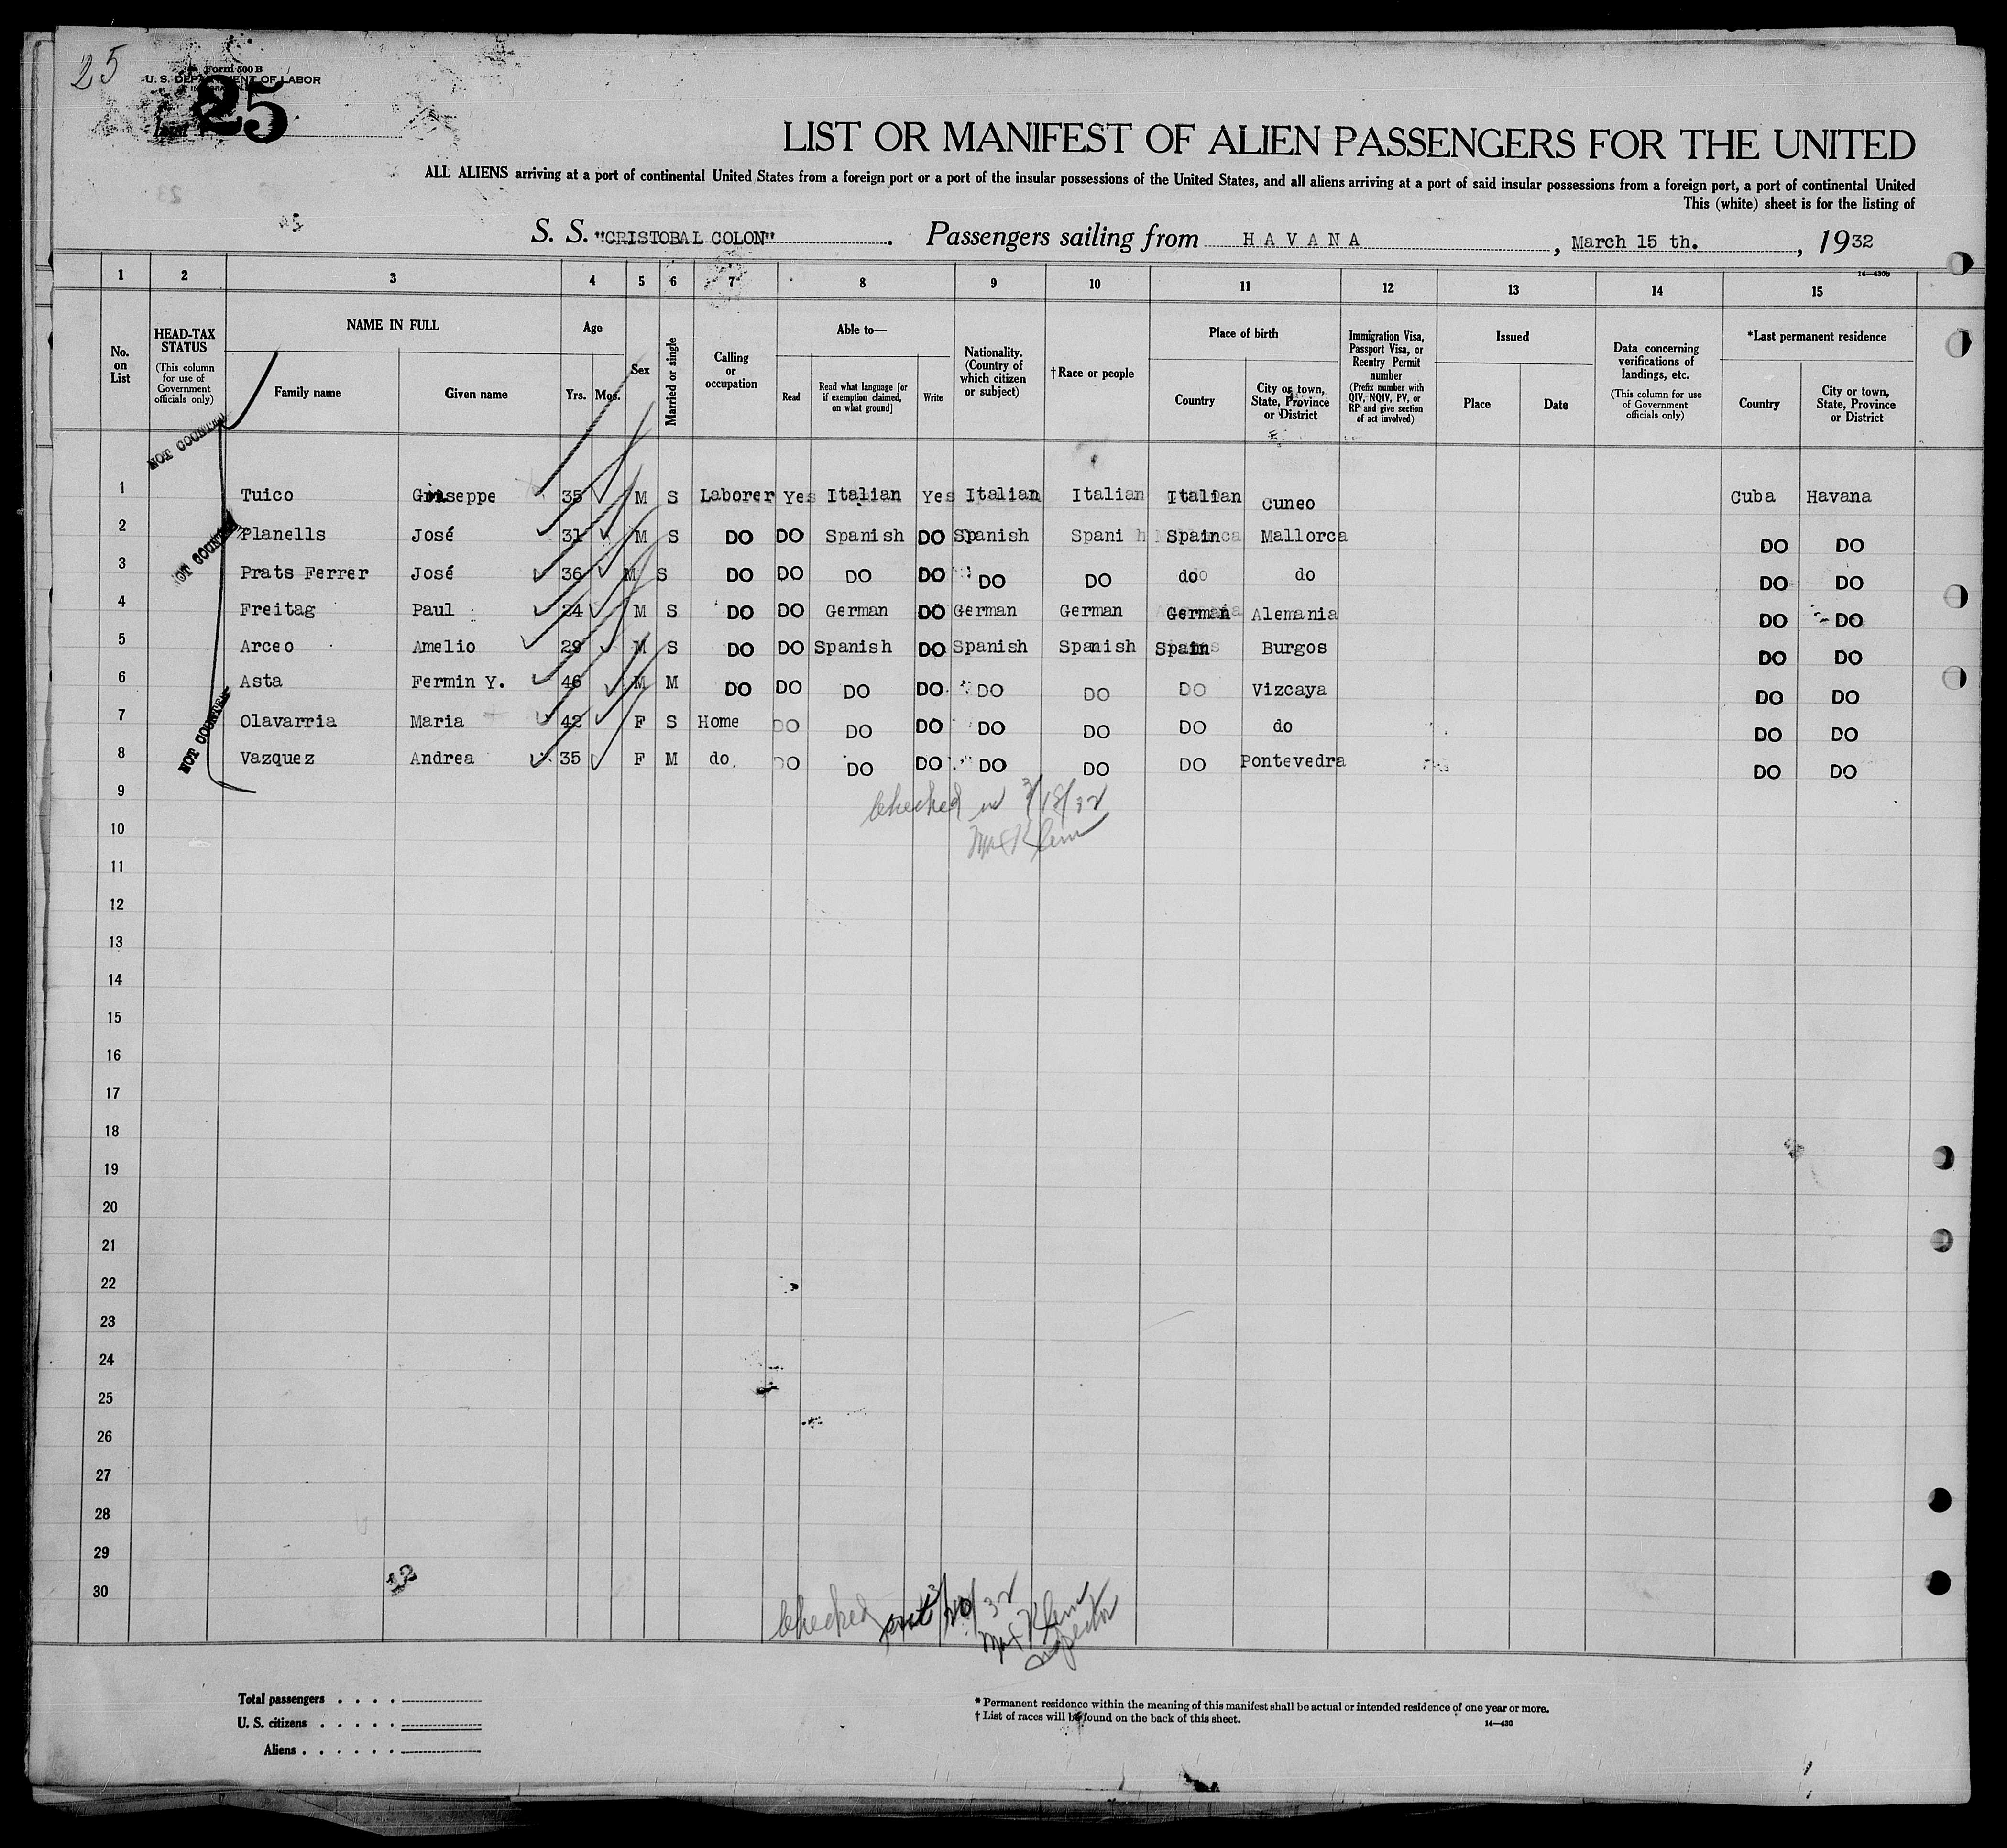 25
Form 500 B
U. S. DEPARTMENT OF LABOR
25
LIST OR MANIFEST OF ALIEN PASSENGERS FOR THE UNITED
ALL ALIENS arriving at a port of continental United States from a foreign port or a port of the insular possessions of the United States, and all aliens arriving at a port of said insular possessions from a foreign port, a port of continental United
This (white) sheet is for the listing of
S. S. "CRISTOBAL COLON". Passengers sailing from HAVANA, March 15 th., 1932
14—430b
1 2 3 4 5 6 7 8 9 10 11 12 13 14 15
No. on List
HEAD-TAX STATUS (This column for use of Government officials only)
NAME IN FULL Family name Given name
Age Yrs. Mos.
Sex
Married or single
Calling or occupation
Able to— Read Read what language [or if exemption claimed, on what ground] Write
Nationality. (Country of which citizen or subject)
†Race or people
Place of birth Country City or town, State, Province or District
Immigration Visa, Passport Visa, or Reentry Permit number (Prefix number with QIV, NQIV, PV, or RP and give section of act involved)
Issued Place Date
Data concerning verifications of landings, etc. (This column for use of Government officials only)
*Last permanent residence Country City or town, State, Province or District
NOT COUNTED
1 Tuico Giuseppe 35 M S Laborer Yes Italian Yes Italian Italian Italian Cuneo Cuba Havana
2 Planells José 31 M S DO DO Spanish DO Spanish Spani h Spain Mallorca DO DO
NOT COUNTED
3 Prats Ferrer José 36 M S DO DO DO DO DO DO do do DO DO
4 Freitag Paul 24 M S DO DO German DO German German German Alemania DO DO
5 Arceo Amelio 29 M S DO DO Spanish DO Spanish Spanish Spain Burgos DO DO
6 Asta Fermin Y. 46 M M DO DO DO DO DO DO DO Vizcaya DO DO
NOT COUNTED
7 Olavarria Maria 42 F S Home DO DO DO DO DO DO do DO DO
8 Vazquez Andrea 35 F M do. DO DO DO DO DO DO Pontevedra DO DO
9 Checked in 3/18/32
10 Max Klein
11
12
13
14
15
16
17
18
19
20
21
22
23
24
25
26
27
28
29
30
12
Checked out 3/20/32
Max Klein
Inspector
Total passengers . . . .
U. S. citizens . . . . .
Aliens . . . . . .
* Permanent residence within the meaning of this manifest shall be actual or intended residence of one year or more.
† List of races will be found on the back of this sheet.
14—430